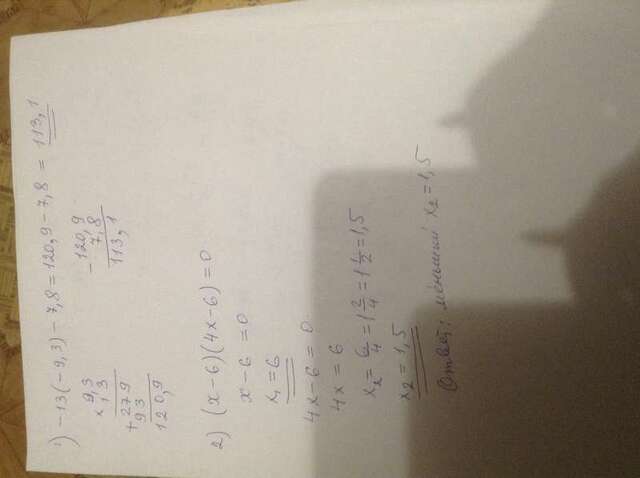 1) -13(-9,3)-7,8=120,9-7,8 = 113,1
9,3
× 13
+ 279
93
120,9
- 120,9
7,8
113,1
2) (x-6)(4x-6)=0
x-6 =0
x₁ =6
4x-6 = 0
4x = 6
x₂= 6/4 =1 2/4 =1 1/2 =1,5
x₂ = 1,5
Ответ: меньший x₂ =1,5